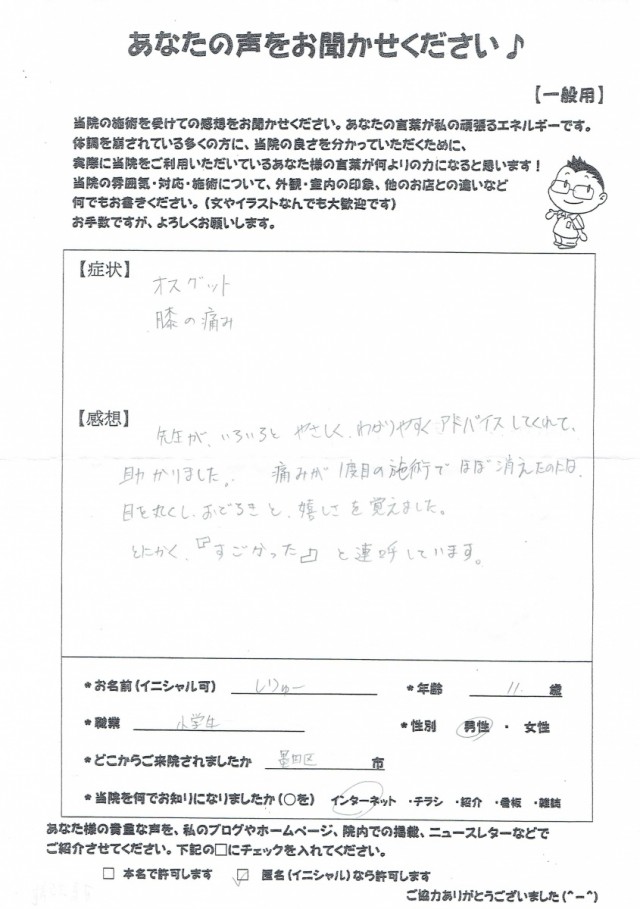 あなたの声をお聞かせください♪
【一般用】
当院の施術を受けての感想をお聞かせください。あなたの言葉が私の頑張るエネルギーです。
体調を崩されている多くの方に、当院の良さを分かっていただくために、
実際に当院をご利用いただいているあなた様の言葉が何よりの力になると思います！
当院の雰囲気・対応・施術について、外観・室内の印象、他のお店との違いなど
何でもお書きください。（文やイラストなんでも大歓迎です）
お手数ですが、よろしくお願いします。
【症状】
オスグット
膝の痛み
【感想】
先生が、いろいろと やさしく、わかりやすく アドバイスしてくれて、
助かりました。 痛みが1度目の施術でほぼ消えたのには、
目を丸くし、おどろきと、嬉しさを覚えました。
とにかく、『すごかった』と連呼しています。
*お名前（イニシャル可） しりゅー *年齢 11 歳
*職業 小学生 *性別 男性 ・ 女性
*どこからご来院されましたか 墨田区 市
*当院を何でお知りになりましたか（○を） インターネット ・チラシ ・紹介 ・看板 ・雑誌
あなた様の貴重な声を、私のブログやホームページ、院内での掲載、ニュースレターなどで
ご紹介させてください。下記の□にチェックを入れてください。
□ 本名で許可します ☑ 匿名（イニシャル）なら許可します
ご協力ありがとうございました(^-^)